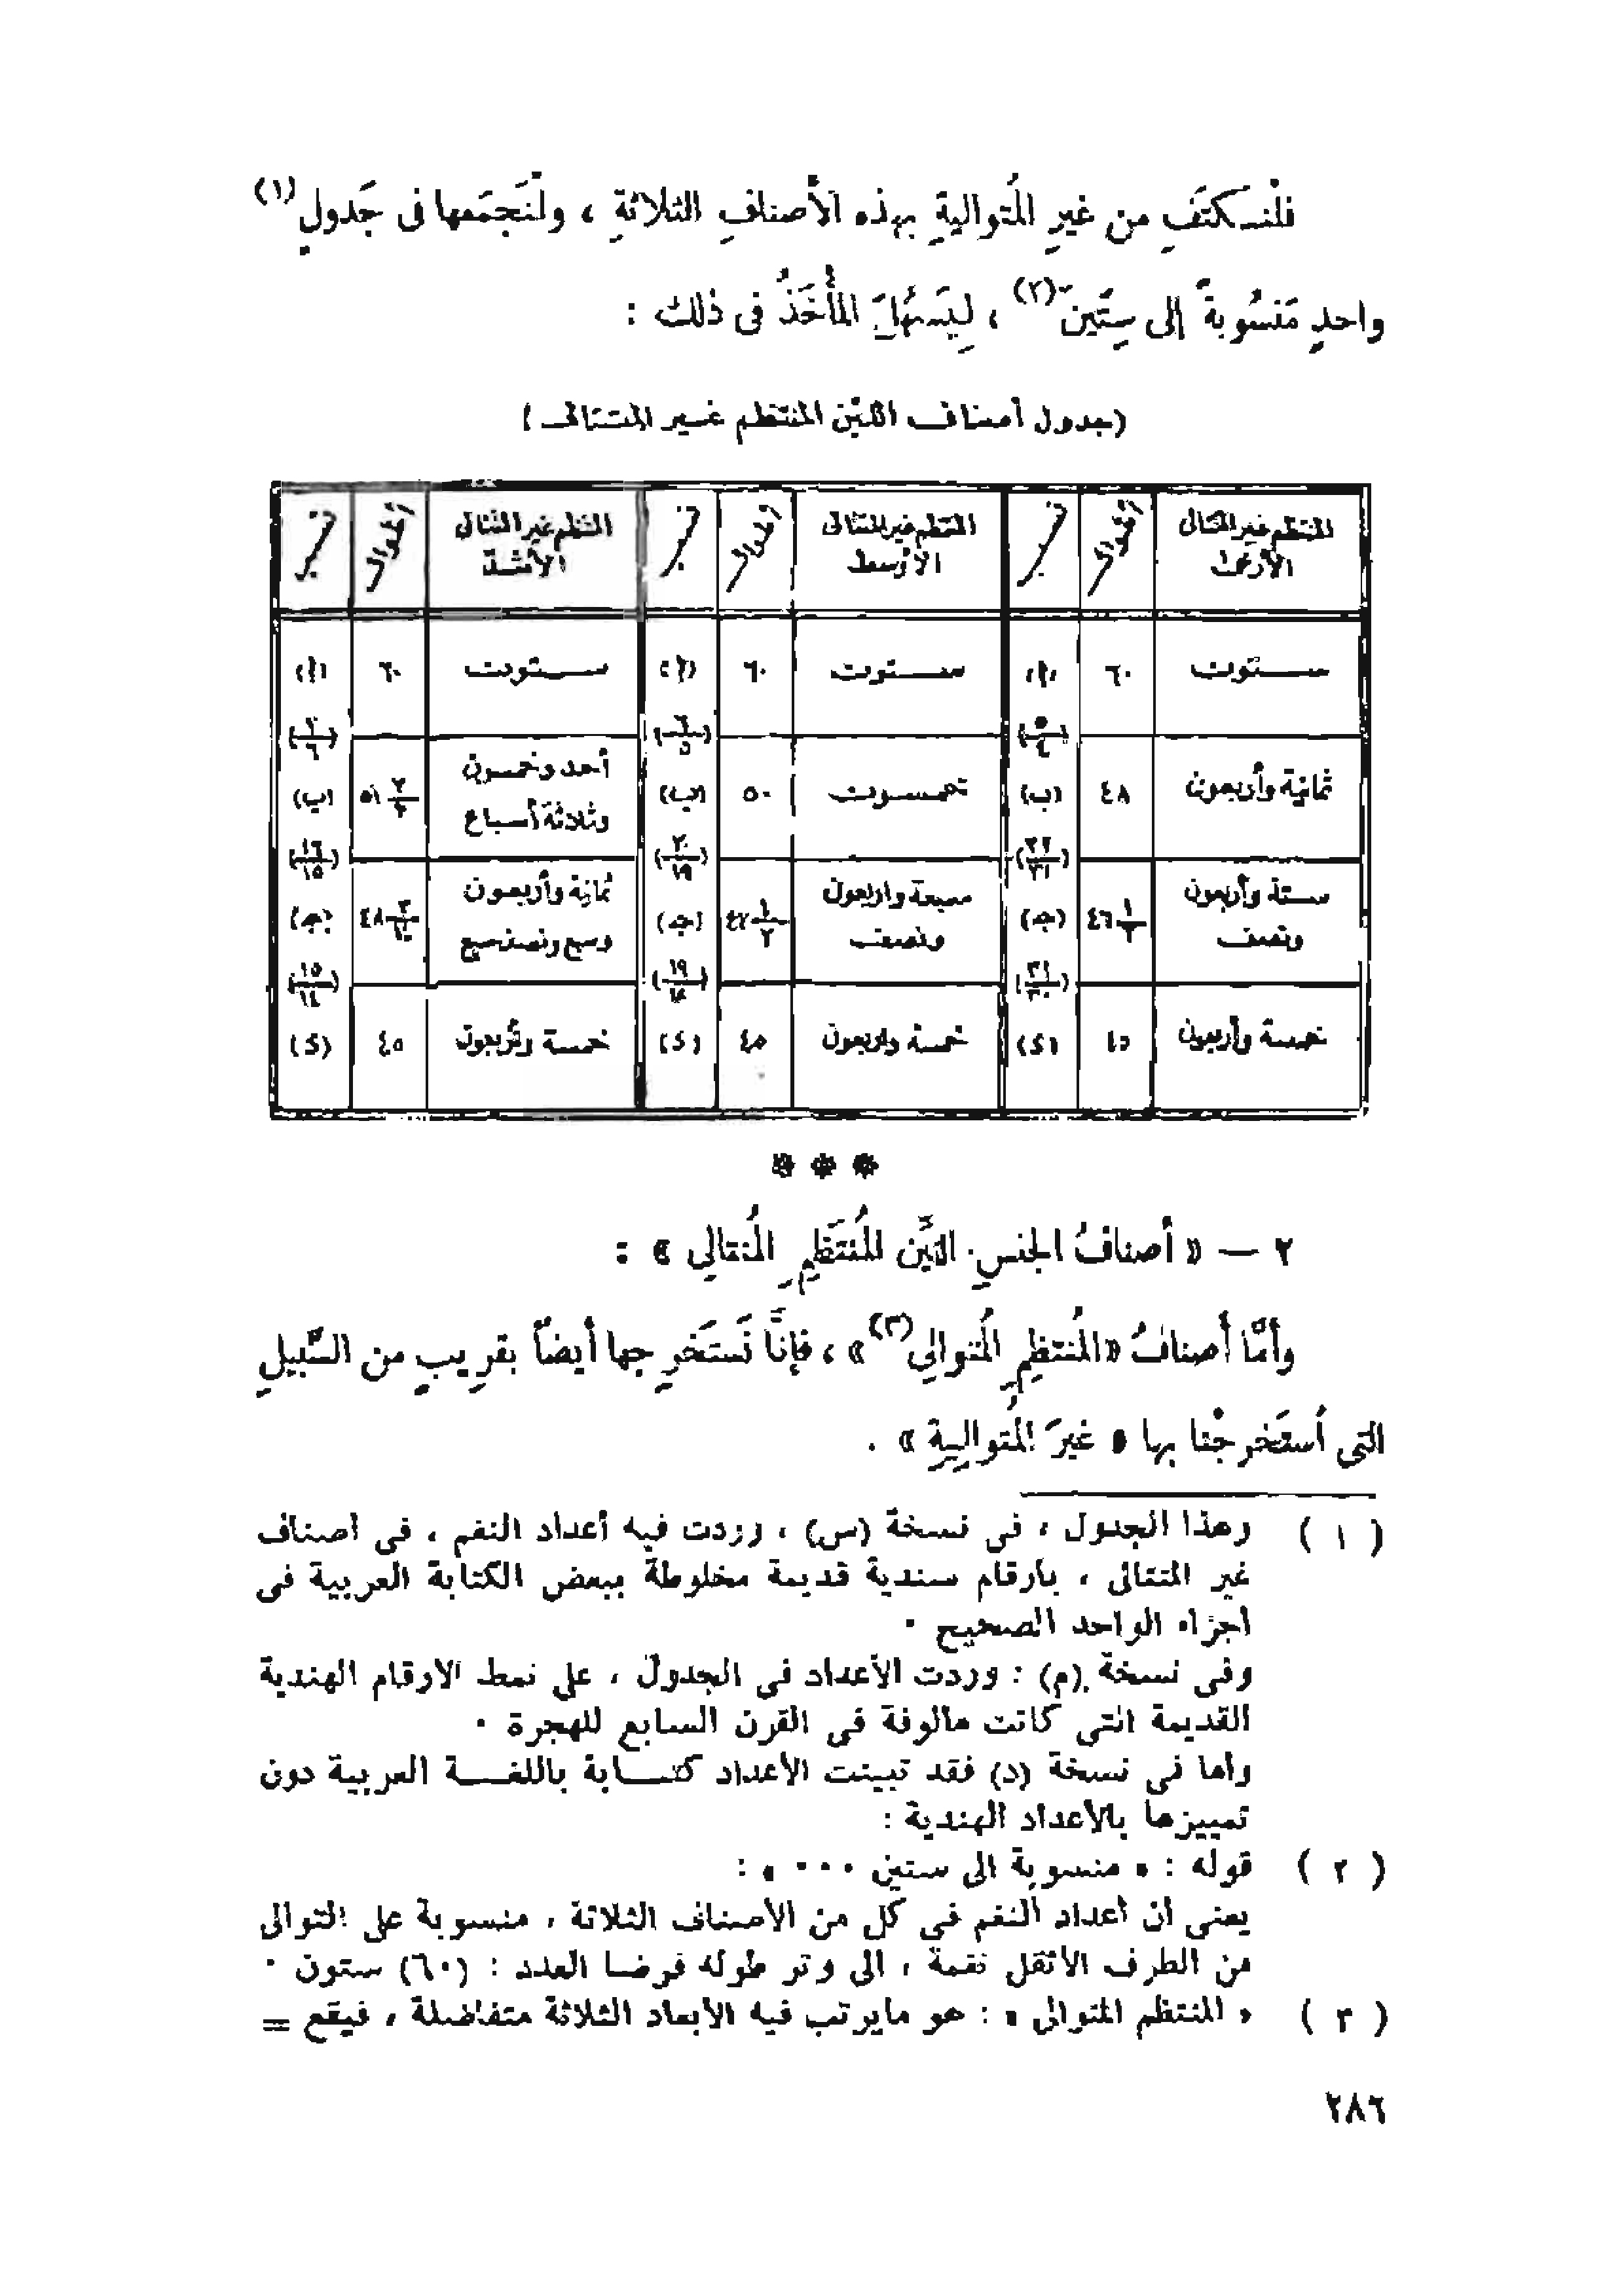 فلْنَـكتَفِ من غيرِ المُتواليةِ بهذه الأصنافِ الثلاثةِ ، ولْنَجمَعها فى جَدولٍ (١)
واحدٍ مَنسُوبةً إلى سِتِّينَ (٢) ، لِيَسهُلَ المأْخَذُ فى ذلك :
(جدول أصناف الليّن المنتظم غير المتتالى)
المنتظم غير المتتالى الأرخى | أطوال | المنتظم غير المتتالى الأوسط | أطوال | المنتظم غير المتتالى الأشدّ | أطوال
ستون | ٦٠ | (ا) | ستون | ٦٠ | (ا) | ستون | ٦٠ | (ا)
(٥/٤) | (٦/٥) | (٧/٦)
ثمانية وأربعون | ٤٨ | (ب) | خمسون | ٥٠ | (ب) | أحد وخمسون وثلاثة أسباع | ٥١ ٣/٧ | (ب)
(٣٢/٣١) | (٢٠/١٩) | (١٦/١٥)
ستة وأربعون ونصف | ٤٦ ١/٢ | (جـ) | سبعة وأربعون ونصف | ٤٧ ١/٢ | (جـ) | ثمانية وأربعون وسبع ونصف سبع | ٤٨ | (جـ)
(٣١/٣٠) | (١٩/١٨) | (١٥/١٤)
خمسة وأربعون | ٤٥ | (د) | خمسة وأربعون | ٤٥ | (د) | خمسة وأربعون | ٤٥ | (د)
* * *
٢ — « أصنافُ الجنسِ الليِّن المُنتَظِمِ المُتتالِي » :
وأمَّا أصنافُ «المُنتظِمِ المُتوالِي (٣)» ، فإنَّا نَستَخرِجها أيضاً بقرِيبٍ من السَّبيلِ
التى أستَخرجْنا بها « غيرَ المُتوالِيةِ » .
( ١ ) وهذا الجدول ، فى نسخة (س) ، وردت فيه أعداد النغم ، فى أصناف
غير المتتالى ، بأرقام سندية قديمة مخلوطة ببعض الكتابة العربية فى
أجزاء الواحد الصحيح ٠
وفى نسخة (م) : وردت الأعداد فى الجدول ، على نمط الارقام الهندية
القديمة التى كانت مألوفة فى القرن السابع للهجرة ٠
وأما فى نسخة (د) فقد تبينت الأعداد كتـابة باللغـة العربية دون
تمييزها بالأعداد الهندية :
( ٢ ) قوله : « منسوبة الى ستين ٠٠٠ » :
يعنى أن أعداد النغم فى كل من الأصناف الثلاثة ، منسوبة على التوالى
من الطرف الأثقل نغمة ، الى وتر طوله فرضا العدد : (٦٠) ستون ٠
( ٣ ) « المنتظم المتوالى » : هو مايرتب فيه الأبعاد الثلاثة متفاضلة ، فيقع =
٢٨٦